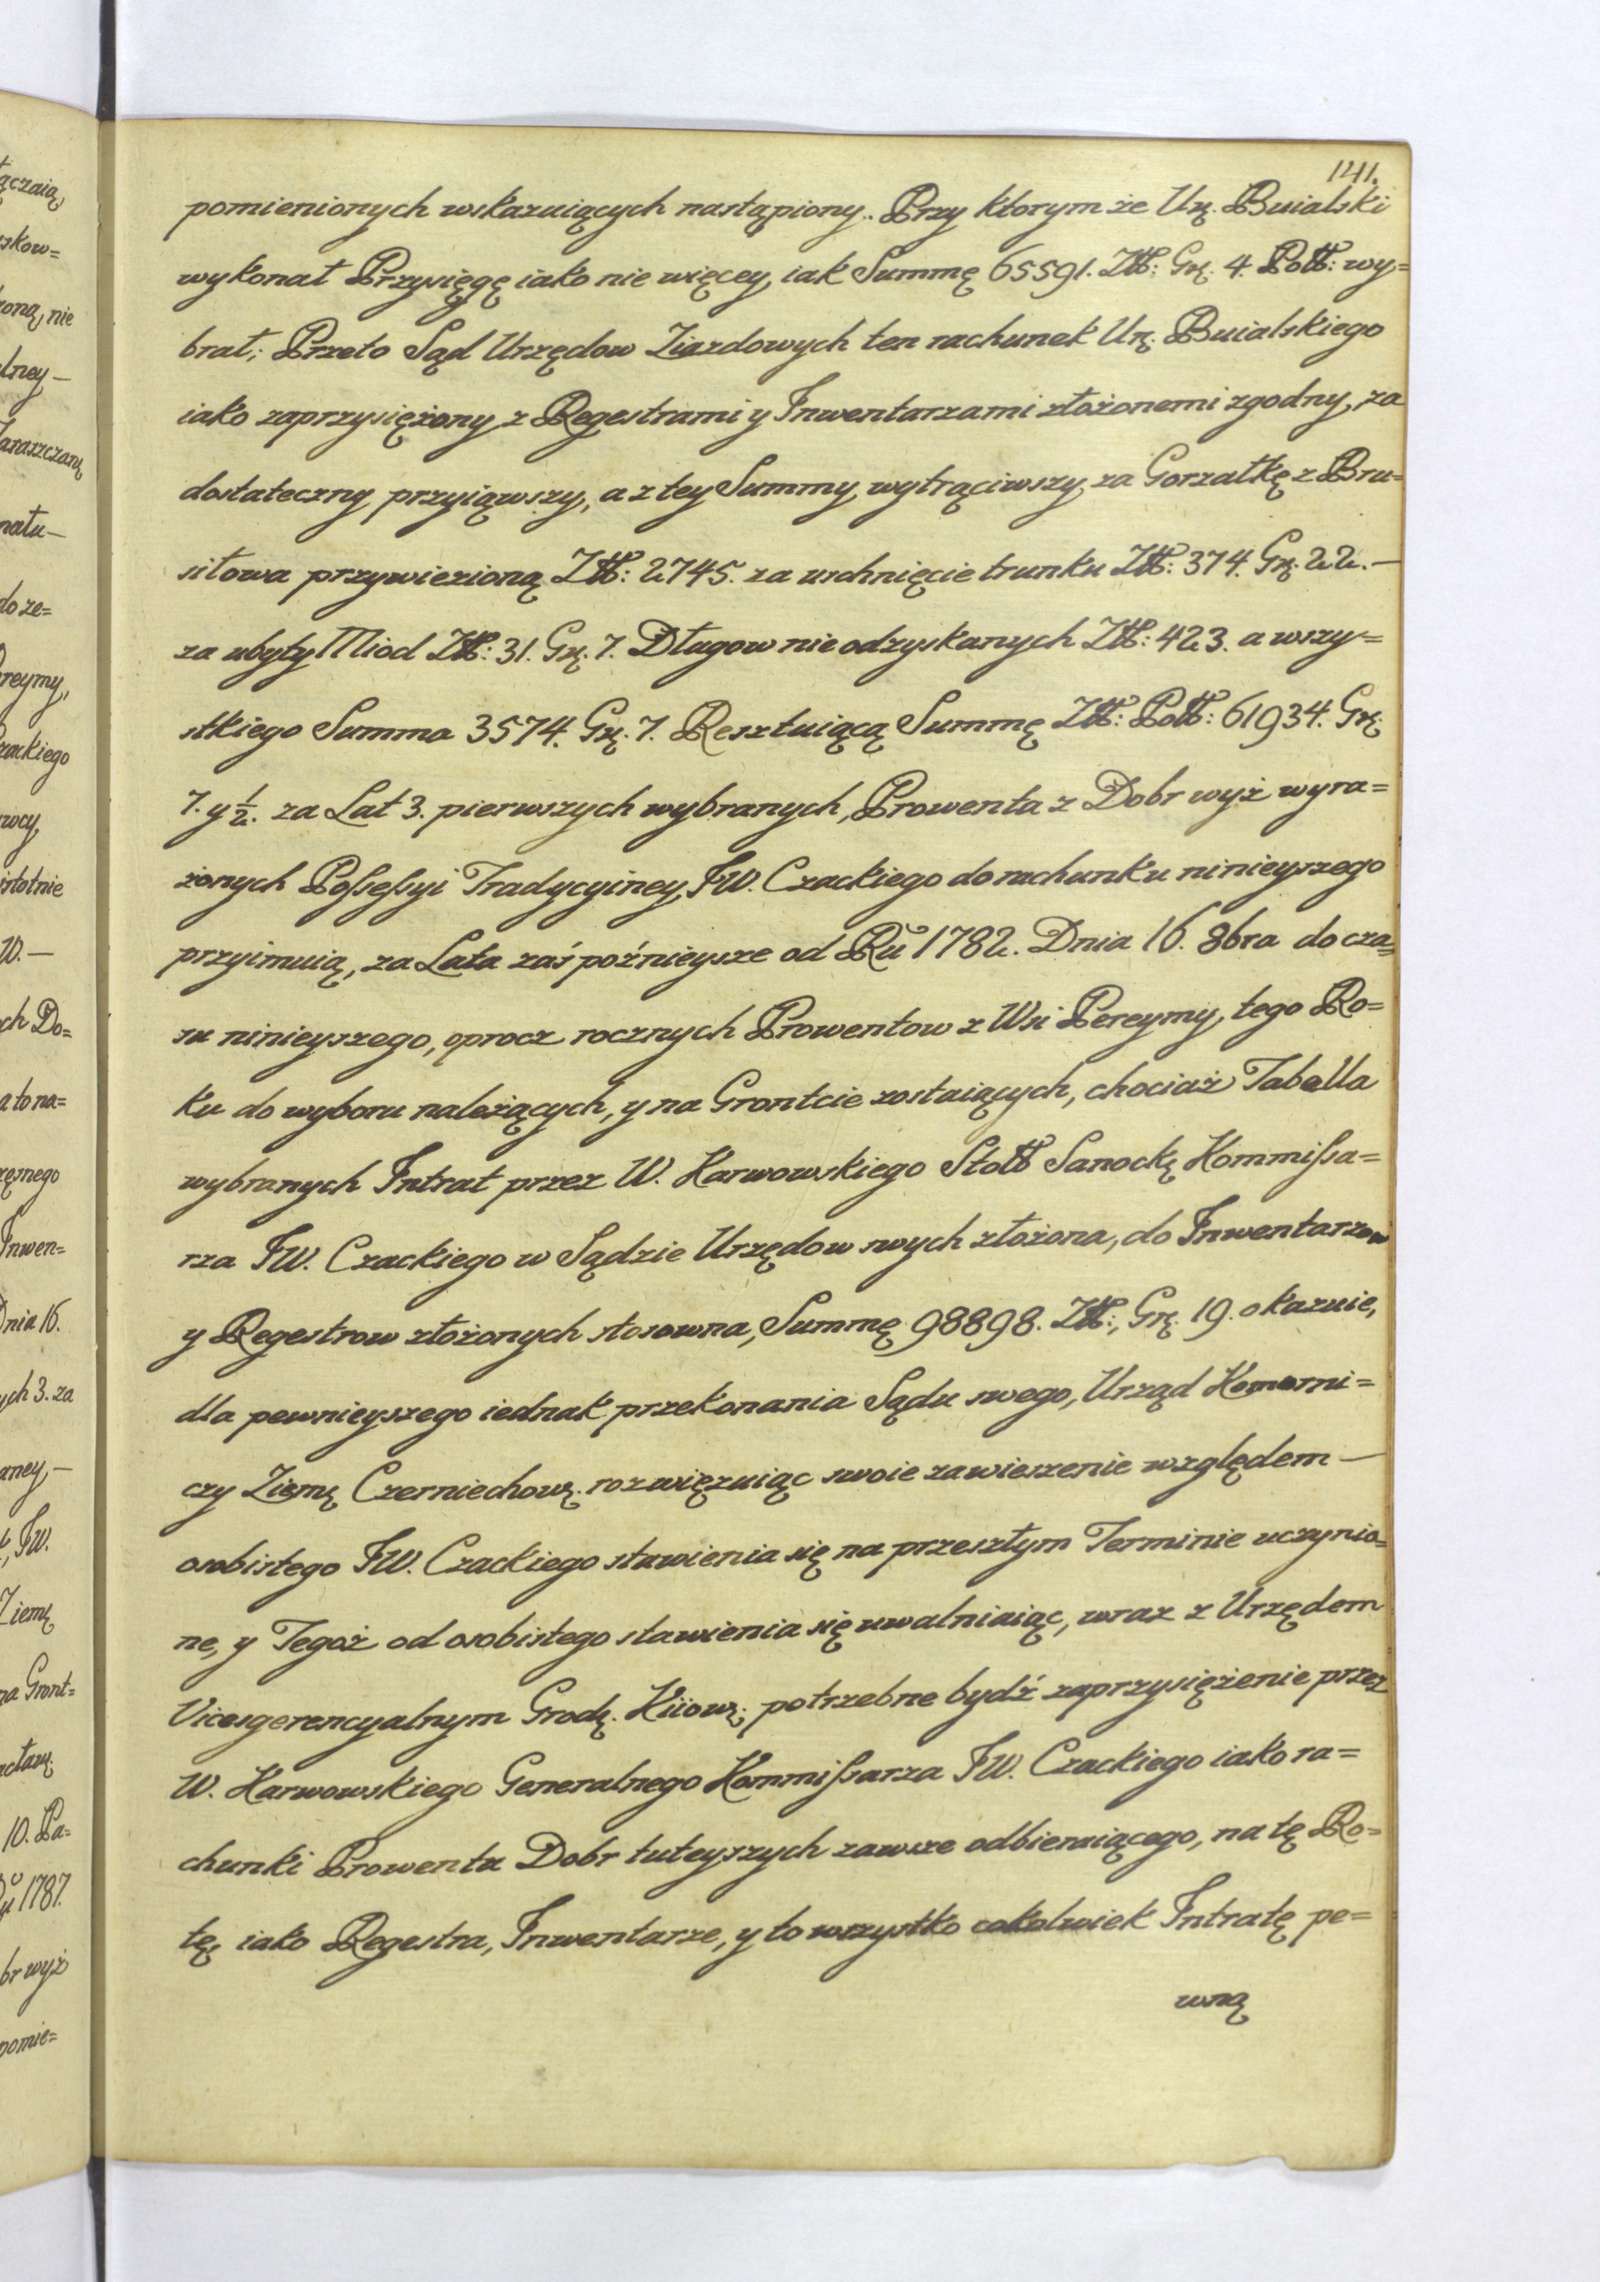 141.
pomienionych wskazuiących nastąpiony. Przy ktorym że Ur. Buialski
wykonał Przysięgę iako nie więcey, iak Summę 65591. Złł: Gr. 4. Poll: wy=
brał; Przeto Sąd Urzędow Ziazdowych ten rachunek Ur. Buialskiego
iako zaprzysiężony z Regestrami y Inwentarzami złożonemi zgodny, za
dostateczny przyiąwszy, a z tey Summy wytrąciwszy za Gorzałkę z Bru=
siłowa przywiezioną Złł: 2745. za uschnięcie trunku Złł: 374. Gr. 22.—
za ubyty Miod Złł: 31. Gr. 7. Długow nie odzyskanych Złł: 423. a wszy=
stkiego Summa 3574. Gr. 7. Resztuiącą Summę Złł: Poll: 61934. Gr.
7. y ½. za Lat 3. pierwszych wybranych, Prowenta z Dobr wyż wyra=
żonych Possessyi Tradycyiney, JW. Czackiego do rachunku ninieyszego
przyimuią, za Lata zaś poźnieysze od Ru 1782. Dnia 16. 8bra do cza=
su ninieyszego, oprocz rocznych Prowentow z Wsi Pereymy, tego Ro=
ku do wyboru należących, y na Grontcie zostaiących, chociaż Tabella
wybranych Intrat przez W. Karwowskiego Stoll Sanockę Kommissa=
rza JW. Czackiego w Sądzie Urzędow swych złożona, do Inwentarzow
y Regestrow złożonych stosowna, Summę 98898. Złł:, Gr. 19. okazuie,
dla pewnieyszego iednak przekonania Sądu swego, Urząd Komorni=
czy Ziemę Czerniechowę. rozwięzuiąc swoie zawieszenie względem —
osobistego JW. Czackiego stawienia się na przeszłym Terminie uczynio=
ne, y Tegoż od osobistego stawienia się uwalniaiąc, wraz z Urzędem
Vicesgerencyalnym Grodz. Kiiow: potrzebne bydź zaprzysiężenie przez
W. Karwowskiego Generalnego Kommissarza JW. Czackiego iako ra=
chunki Prowentu Dobr tuteyszych zawsze odbieraiącego, na tę Ro=
tę, iako Regestra, Inwentarze, y to wszystko cokolwiek Intratę pe=
wną